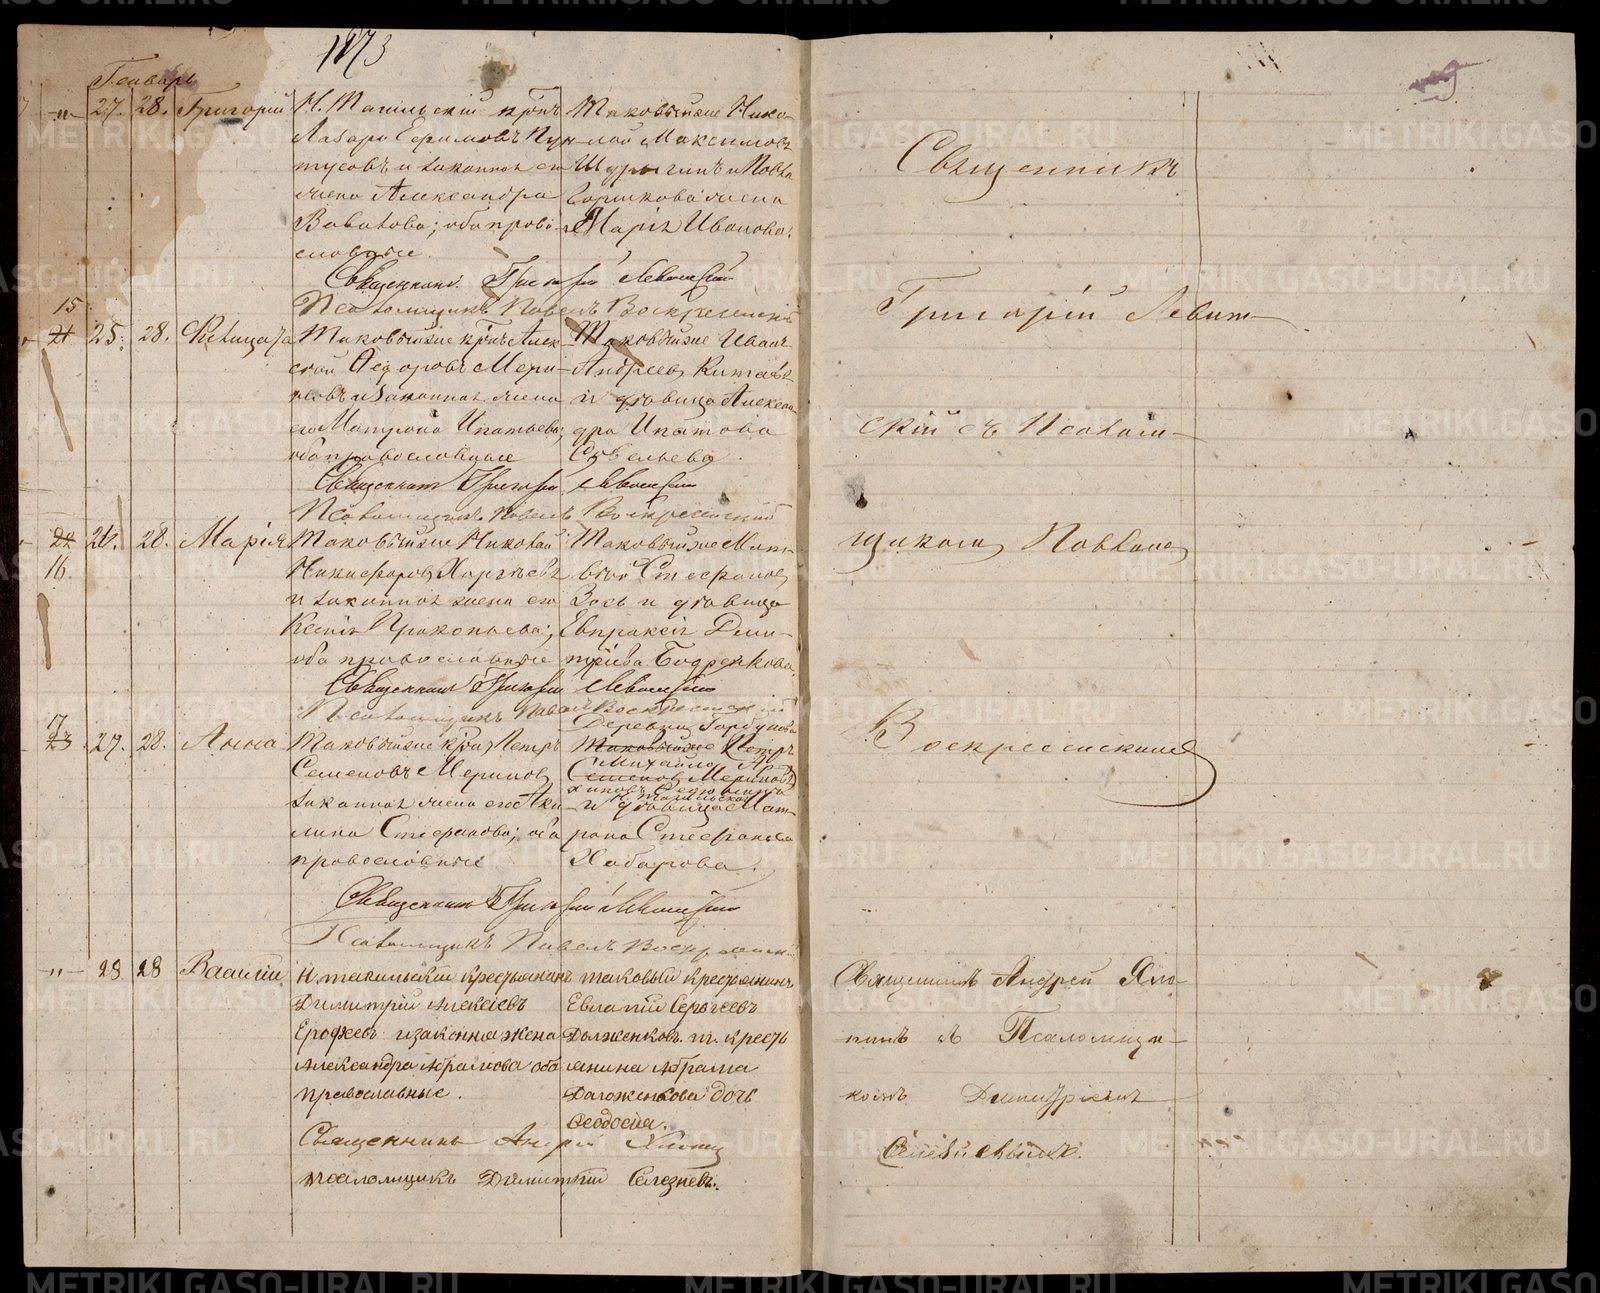 1873
Генварь
" 27. 28. Григорій
Н. Тагильскій
Лазарь Ефимовъ Пур-
тусовъ и законная его
жена Александра
оба право-
славные.
Таковыйже Нико-
лай Максимовъ
Шурыгинъ и Павла
жена
Марія Иванова.
Священникъ Григорій Левитскій
Псаломщикъ Павелъ Воскресенскій
15
21 25. 28. Елизавета
Таковыйже Алек-
сѣй Ѳедоровъ Мери-
новъ и законная жена
его Матрона Ипатьева;
оба православные
Таковыйже Иванъ
Андреевъ
и дѣвица Алексан-
дра Ипатова
Савельева.
Священникъ Григорій Левитскій
Псаломщикъ Павелъ Воскресенскій
22 26. 28. Марія
16.
Таковыйже Николай
Никифоровъ
и законная жена его
Ксенія Прокопьева;
оба православные
Таковыйже Мат-
вѣй Стефановъ
Зось и дѣвица
Евпраксія Дими-
тріева Бодренкова.
Священникъ Григорій Левитскій
Псаломщикъ Павелъ Воскресенскій
17
23 27. 28. Анна
Таковыйже Петръ
Семеновъ Меринов
законная жена его Аки-
лина Стефанова; оба
православные
Деревни Горбунова
Таковыйже Петръ
Михайло
Семенов Меринов
Н. Тагильская
и дѣвица Мат-
рона Стефанова
Хабарова.
Священникъ Григорій Левитскій
Псаломщикъ Павелъ Воскресенскій
" 28 28 Василій.
Н. тагильскій крестьянинъ
Димитрій Алексѣевъ
Ерофеевъ и законная жена
Александра Абрамова оба
православные.
таковый крестьянинъ
Евлампій Сергѣевъ
Долженковъ. т. кресть
янина Абрама
Долженкова дочь
Ѳеодосія.
Священникъ Андрей
псаломщикъ Димитрій Селезневъ.
Священникъ
Григорій Левит-
скій съ Псалом-
щиком Павлом
Воскресенскимъ
Священникъ Андрей Хло-
пинъ с Псаломщи-
комъ Димитріемъ
METRIKI.GASO-URAL.RU